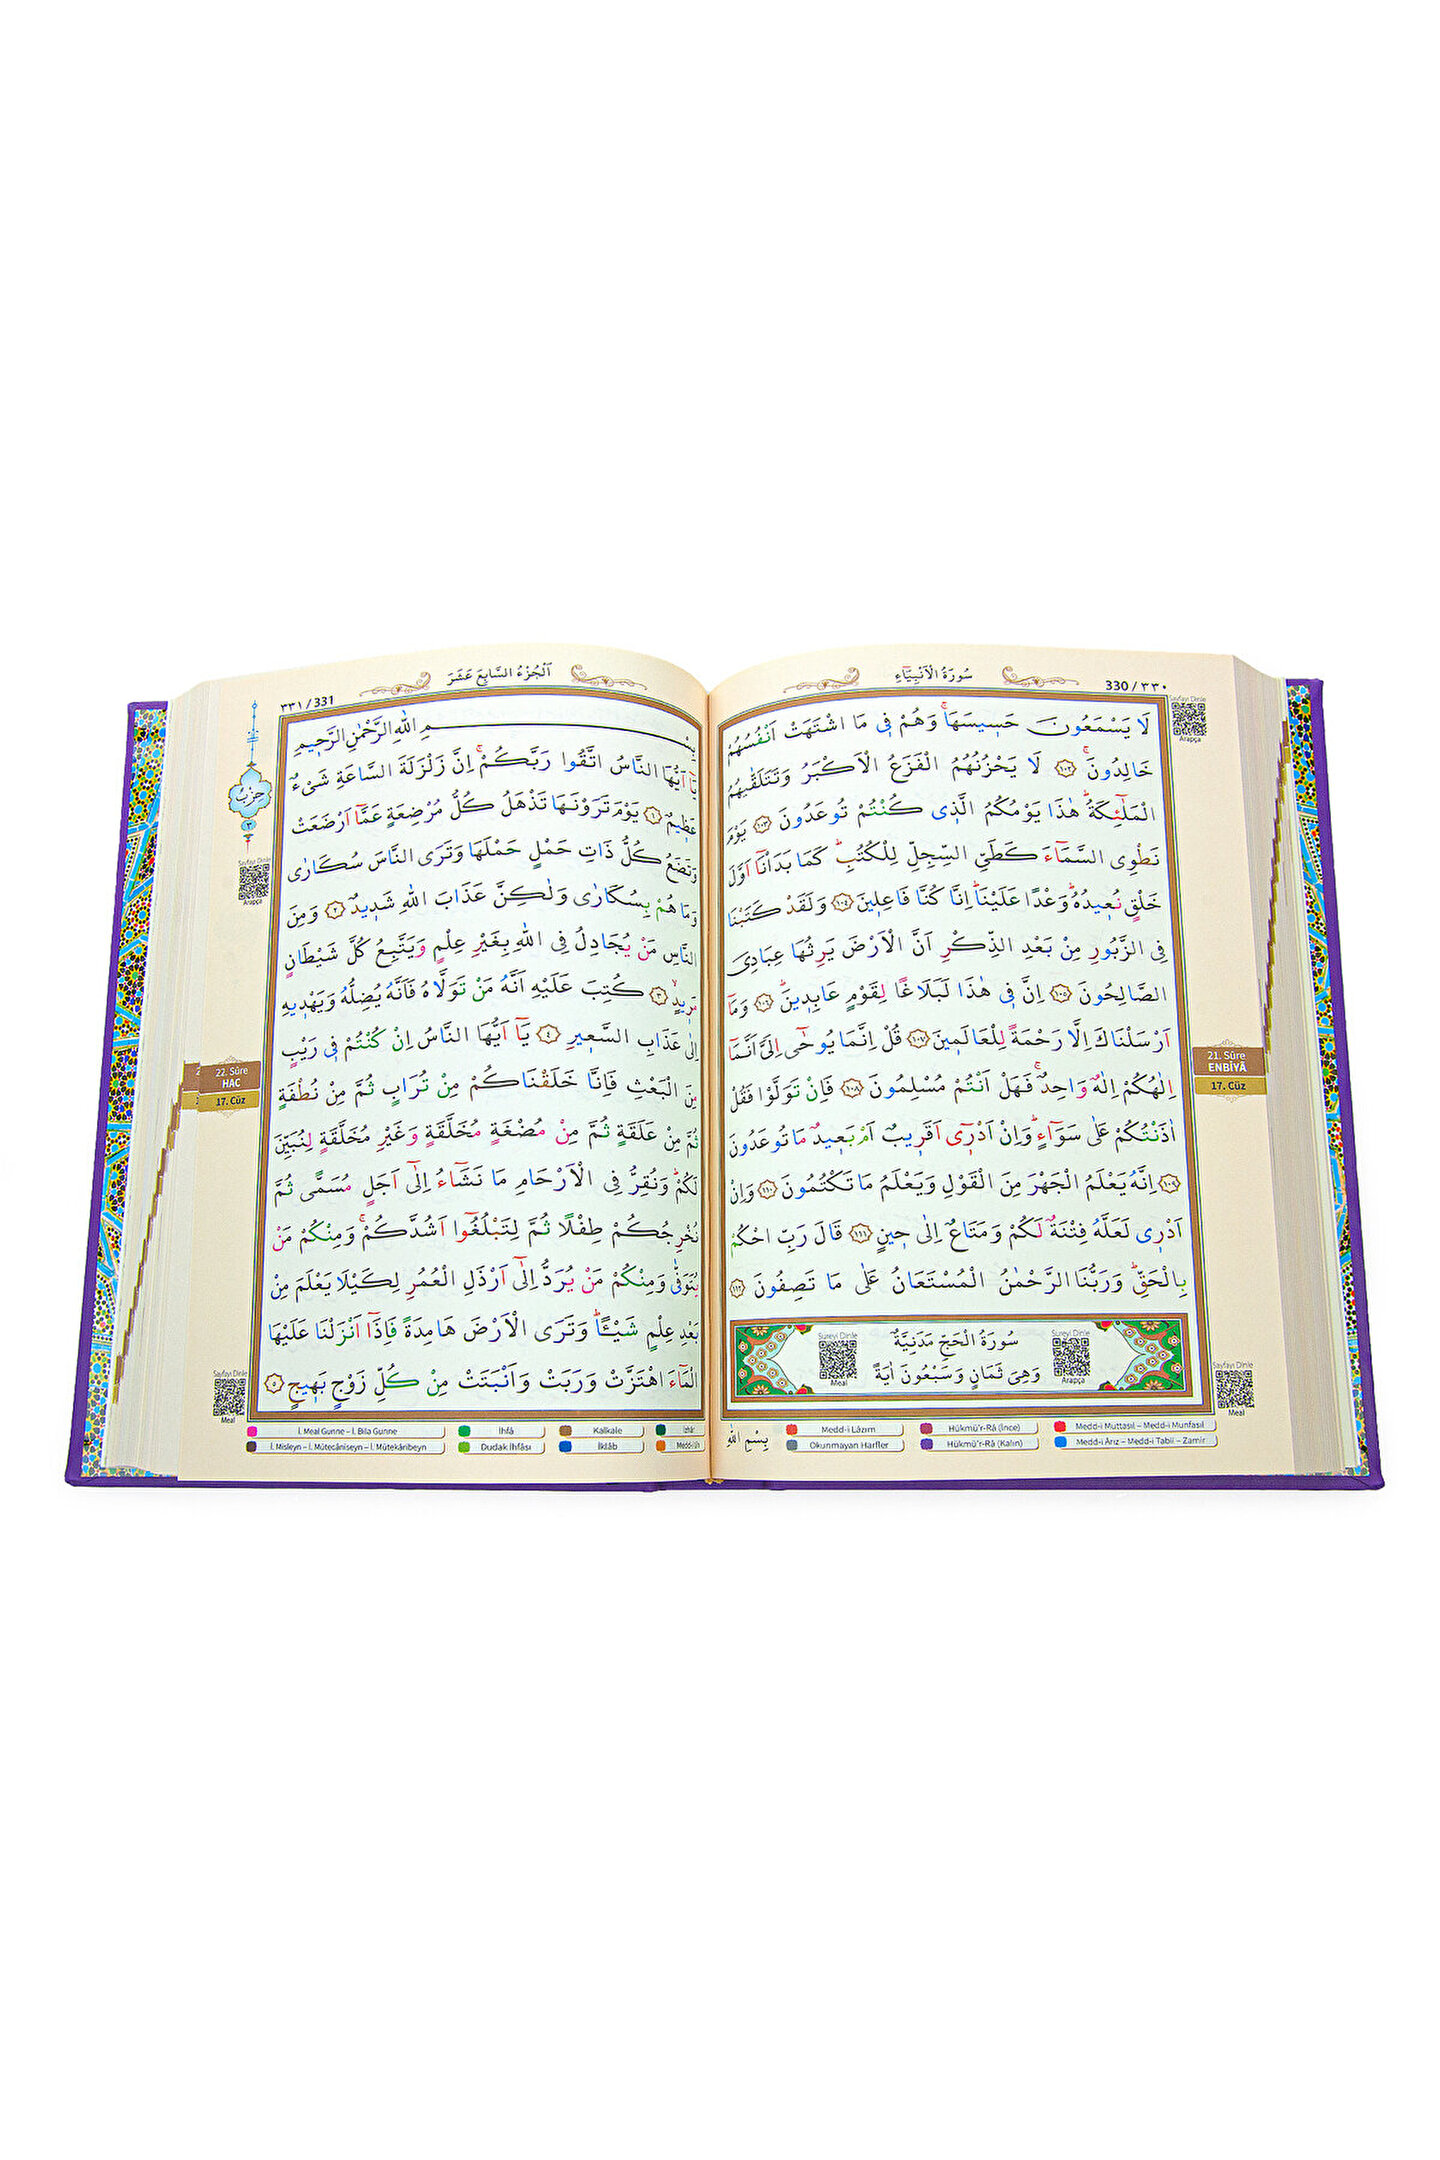 330 / ٣٣٠
سُورَةُ الْاَنْبِيَٓاءِ
Sayfayı Dinle
Arapça
لَا يَسْمَعُونَ حَس۪يسَهَاۚ وَهُمْ ف۪ي مَا اشْتَهَتْ اَنْفُسُهُمْ
خَالِدُونَۚ ﴿١٠٢﴾ لَا يَحْزُنُهُمُ الْفَزَعُ الْاَكْبَرُ وَتَتَلَقّٰيهُمُ
الْمَلٰٓئِكَةُۜ هٰذَا يَوْمُكُمُ الَّذ۪ي كُنْتُمْ تُوعَدُونَ ﴿١٠٣﴾ يَوْمَ
نَطْوِي السَّمَٓاءَ كَطَيِّ السِّجِلِّ لِلْكُتُبِۜ كَمَا بَدَأْنَٓا اَوَّلَ
خَلْقٍ نُع۪يدُهُۜ وَعْدًا عَلَيْنَاۜ اِنَّا كُنَّا فَاعِل۪ينَ ﴿١٠٤﴾ وَلَقَدْ كَتَبْنَا
فِي الزَّبُورِ مِنْ بَعْدِ الذِّكْرِ اَنَّ الْاَرْضَ يَرِثُهَا عِبَادِيَ
الصَّالِحُونَ ﴿١٠٥﴾ اِنَّ ف۪ي هٰذَا لَبَلَاغًا لِقَوْمٍ عَابِد۪ينَۜ ﴿١٠٦﴾ وَمَٓا
اَرْسَلْنَاكَ اِلَّا رَحْمَةً لِلْعَالَم۪ينَ ﴿١٠٧﴾ قُلْ اِنَّمَا يُوحٰٓى اِلَيَّ اَنَّمَٓا
اِلٰهُكُمْ اِلٰهٌ وَاحِدٌۚ فَهَلْ اَنْتُمْ مُسْلِمُونَ ﴿١٠٨﴾ فَاِنْ تَوَلَّوْا فَقُلْ
اٰذَنْتُكُمْ عَلٰى سَوَٓاءٍۜ وَاِنْ اَدْر۪ٓي اَقَر۪يبٌ اَمْ بَع۪يدٌ مَا تُوعَدُونَ
﴿١٠٩﴾ اِنَّهُ يَعْلَمُ الْجَهْرَ مِنَ الْقَوْلِ وَيَعْلَمُ مَا تَكْتُمُونَ ﴿١١٠﴾ وَاِنْ
اَدْر۪ي لَعَلَّهُ فِتْنَةٌ لَكُمْ وَمَتَاعٌ اِلٰى ح۪ينٍ ﴿١١١﴾ قَالَ رَبِّ احْكُمْ
بِالْحَقِّۜ وَرَبُّنَا الرَّحْمٰنُ الْمُسْتَعَانُ عَلٰى مَا تَصِفُونَ ﴿١١٢﴾
21. Sûre
ENBİYÂ
17. Cüz
Sureyi Dinle
Arapça
سُورَةُ الْحَجِّ مَدَنِيَّةٌ
وَهِيَ ثَمَانٍ وَسَبْعُونَ اٰيَةً
Sureyi Dinle
Meal
Sayfayı Dinle
Meal
بِسْمِ اللّٰهِ
Medd-i Lâzım
Hükmü'r-Râ (İnce)
Medd-i Muttasıl – Medd-i Munfasıl
Okunmayan Harfler
Hükmü'r-Râ (Kalın)
Medd-i Ârız – Medd-i Tabiî – Zamir
اَلْجُزْءُ السَّابِعَ عَشَرَ
٣٣١ / 331
حِزْبٌ
٣
Sayfayı Dinle
Arapça
بِسْمِ اللّٰهِ الرَّحْمٰنِ الرَّحِيمِ
يَٓا اَيُّهَا النَّاسُ اتَّقُوا رَبَّكُمْۚ اِنَّ زَلْزَلَةَ السَّاعَةِ شَيْءٌ
عَظ۪يمٌ ﴿١﴾ يَوْمَ تَرَوْنَهَا تَذْهَلُ كُلُّ مُرْضِعَةٍ عَمَّٓا اَرْضَعَتْ
وَتَضَعُ كُلُّ ذَاتِ حَمْلٍ حَمْلَهَا وَتَرَى النَّاسَ سُكَارٰى
وَمَا هُمْ بِسُكَارٰى وَلٰكِنَّ عَذَابَ اللّٰهِ شَد۪يدٌ ﴿٢﴾ وَمِنَ
النَّاسِ مَنْ يُجَادِلُ فِي اللّٰهِ بِغَيْرِ عِلْمٍ وَيَتَّبِعُ كُلَّ شَيْطَانٍ
مَر۪يدٍۙ ﴿٣﴾ كُتِبَ عَلَيْهِ اَنَّهُ مَنْ تَوَلَّاهُ فَاَنَّهُ يُضِلُّهُ وَيَهْد۪يهِ
اِلٰى عَذَابِ السَّع۪يرِ ﴿٤﴾ يَٓا اَيُّهَا النَّاسُ اِنْ كُنْتُمْ ف۪ي رَيْبٍ
مِنَ الْبَعْثِ فَاِنَّا خَلَقْنَاكُمْ مِنْ تُرَابٍ ثُمَّ مِنْ نُطْفَةٍ
ثُمَّ مِنْ عَلَقَةٍ ثُمَّ مِنْ مُضْغَةٍ مُخَلَّقَةٍ وَغَيْرِ مُخَلَّقَةٍ لِنُبَيِّنَ
لَكُمْۜ وَنُقِرُّ فِي الْاَرْحَامِ مَا نَشَٓاءُ اِلٰٓى اَجَلٍ مُسَمًّى ثُمَّ
نُخْرِجُكُمْ طِفْلًا ثُمَّ لِتَبْلُغُٓوا اَشُدَّكُمْۚ وَمِنْكُمْ مَنْ
يُتَوَفّٰى وَمِنْكُمْ مَنْ يُرَدُّ اِلٰٓى اَرْذَلِ الْعُمُرِ لِكَيْلَا يَعْلَمَ مِنْ
بَعْدِ عِلْمٍ شَيْـًٔاۜ وَتَرَى الْاَرْضَ هَامِدَةً فَاِذَٓا اَنْزَلْنَا عَلَيْهَا
الْمَٓاءَ اهْتَزَّتْ وَرَبَتْ وَاَنْبَتَتْ مِنْ كُلِّ زَوْجٍ بَه۪يجٍ ﴿٥﴾
22. Sûre
HAC
17. Cüz
Sayfayı Dinle
Meal
İ. Meal Gunne – İ. Bila Gunne
İhfâ
Kalkale
İzhâr
İ. Misleyn – İ. Mütecâniseyn – İ. Mütekâribeyn
Dudak İhfâsı
İklâb
Medd-i Lîn